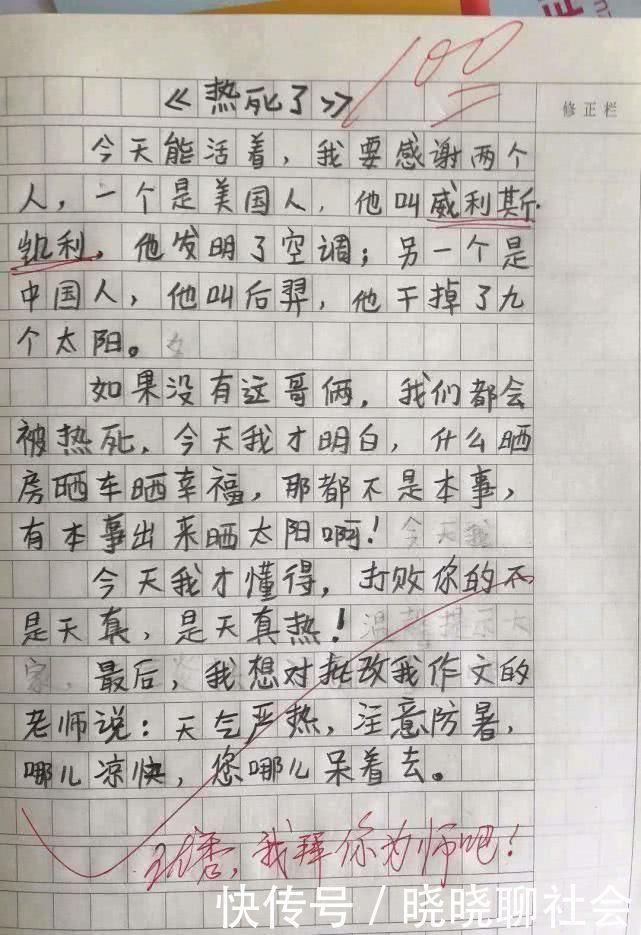 证
100
《热死了》
修正栏
今天能活着，我要感谢两个
人，一个是美国人，他叫威利斯·
凯利，他发明了空调；另一个是
中国人，他叫后羿，他干掉了九
个太阳。
如果没有这哥俩，我们都会
被热死，今天我才明白，什么晒
房晒车晒幸福，那都不是本事，
有本事出来晒太阳啊！今天我
今天我才懂得，打败你的不
是天真，是天真热！温馨提示大
家，最后，我想对批改我作文的
老师说：天气严热，注意防暑，
哪儿凉快，您哪儿呆着去。
优秀，我拜你为师吧！
快传号/晓晓聊社会